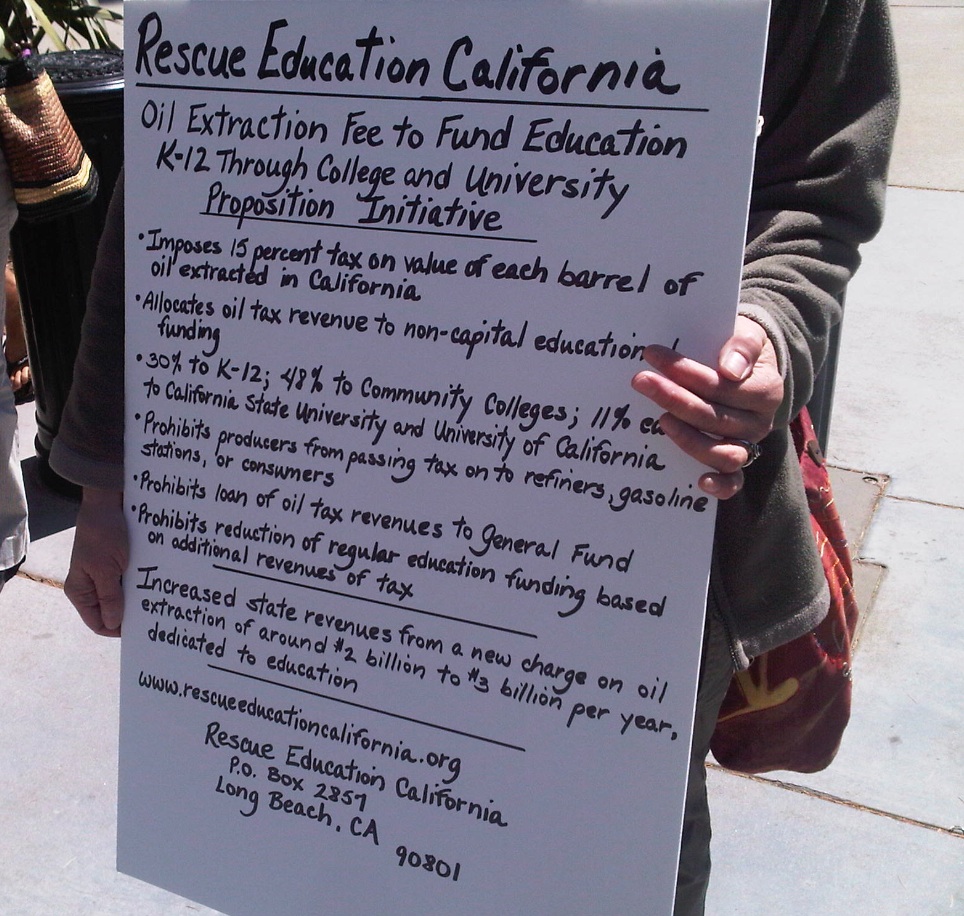 Rescue Education California
Oil Extraction Fee to Fund Education
K-12 Through College and University
Proposition Initiative
• Imposes 15 percent tax on value of each barrel of
oil extracted in California
• Allocates oil tax revenue to non-capital education
funding
• 30% to K-12; 48% to Community Colleges; 11% ea
to California State University and University of California
• Prohibits producers from passing tax on to refiners, gasoline
stations, or consumers
• Prohibits loan of oil tax revenues to General Fund
• Prohibits reduction of regular education funding based
on additional revenues of tax
Increased state revenues from a new charge on oil
extraction of around $2 billion to $3 billion per year,
dedicated to education
www.rescueeducationcalifornia.org
Rescue Education California
P.O. Box 2857
Long Beach, CA
90801